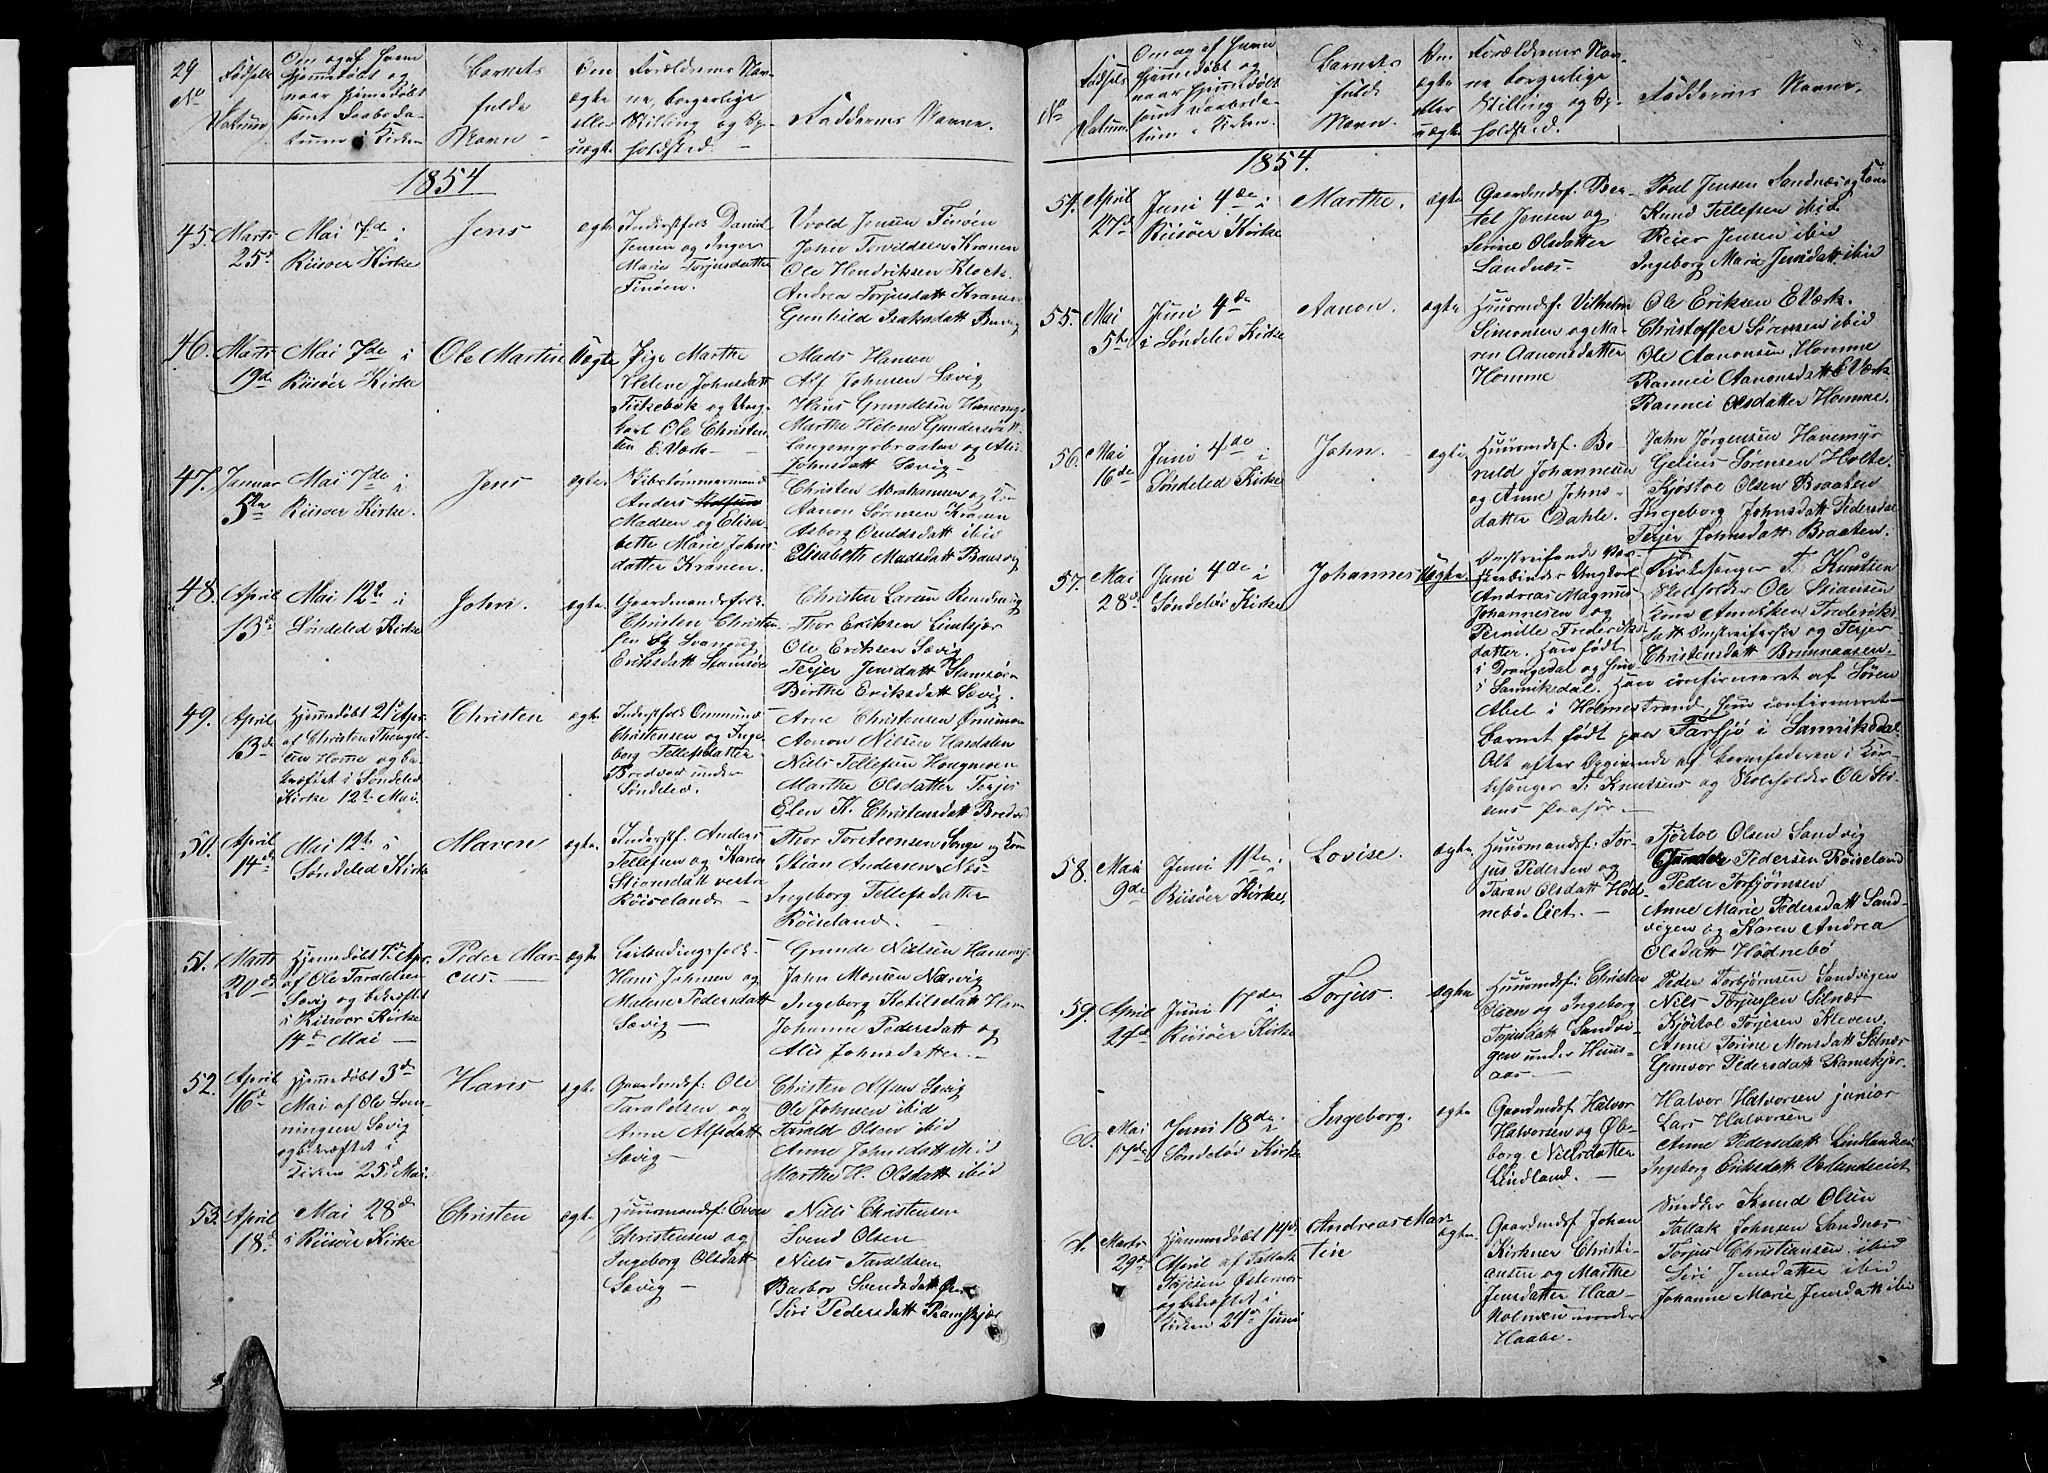 29
No
Fødsels
Datum
Om og af hvem
hjemmedøbt og
naar hjemmedøbt
samt Daabsda-
tum i Kirken
Barnets
fulde
Navn
Om
ægte
eller
uægte
Forældrenes Nav-
ne, borgerlige
Stilling og Op-
holdsted.
Faddernes Navne.
1854
45.
Marts
25d
Mai 7de i
Riisøer Kirke
Jens
ægte
Inderstfolk Daniel
Jensen og Inger
Marie Torjusdatter
Finøen.
Jensen Finøen
John Kranen
Ole Hendriksen
Andrea Torjusdatt Kranen
Gunhild Isaksdatt
46.
Marts
19de
Mai 7de i
Riisøer Kirke
Ole Martin
Uægte
Pige Marthe
Helene Johnsdatt
og Ung-
karl Ole Christen-
sen E. Værk
Mads Hansen
Alf Johnsen Savig
Hans Grundesen Hanemyr
Marthe Helene Gundersdatt
Langemyrbraaten og Alis
Johnsdatt Savig
47.
Januar
5te
Mai 7de i
Riisøer Kirke.
Jens
ægte.
Skibstømmermand
Anders
Madsen og Elisa-
beth Marie Johns-
datter Kranen.
Christen Abrahamsen og Kone
Aanon Sørensen Kranen
Asborg ibid
Elisabeth Madsdatt
48.
April
13de
Mai 12te i
Søndeled Kirke
John.
ægte.
Gaardmandsfolk
Christen Christen-
sen og
Eriksdatt Stamsøe
Christen Larsen
Thor Eriksen
Ole Eriksen Savig
Terjer Jensdatt Stamsøen
Birthe Eriksdatt Savig.
49.
April
13de
Hjemmedøbt 21d Apr.
af Christen Thengel-
sen Home og be-
kræftet i Søndeled
Kirke 12te Mai.
Christen
ægte
Inderstfolk Ommund
Christensen og Inge-
borg Tellefsdatter
Bredvad under
Søndeled.
Arne Christensen
Aanon Nilsen Hasdalen
Niels Tellefsen Hougmoen
Marthe Olsdatter
Elen K. Christensdatt Bredvad
50.
April
14de
Mai 12te i
Søndeled Kirke
Maren
ægte.
Inderstf. Anders
Tellefsen og Karen
Stiansdatt vestre
Røiseland
Thor Torstensen Songe og Kone
Stian Andersen Næs
Ingeborg Tellefsdatter
Røiseland.
51.
Marts
20de
Hjemmedøbt 7de Apr.
af Ole Taraldsen
Savig og bekræftet
i Riisøer Kirke
14de Mai
Peder Mar-
cus.
ægte
Hans Johnsen og
Malene Pedersdatt
Savig
Grunde Nielsen Hanemyr
John Monsen Navig
Ingeborg Ketilsdatt
Johanne Pedersdatt og
Alis Johnsdatter.
52.
April
16de
Hjemmedøbt 3de
Mai af Ole Sven-
ningsen Savig
og bekræftet i
Kirken 25d Mai.
Hans
ægte
Gaardmdsf: Ole
Taraldsen og
Anne Alfsdatt
Savig
Christen Alfsen Savig
Ole Johnsen ibid
Tarald Olsen ibid
Anne Johnsdatt ibid
Marthe H. Olsdatt ibid
53.
April
18d
Mai 28de
i Riisøer Kirke
Christen
ægte
Huusmandsf: Even
Christensen og
Ingeborg Olsdatt
Savig
Niels Christensen
Svend Olsen
Niels Taraldsen
Barbro Svendsdatt
Siri Pedersdatt Ramskjær
No
Fødsels
Datum
Om og af hvem
hjemmedøbt og
naar hjemmedøbt
samt Daabsda-
tum i Kirken.
Barnets
fulde
Navn.
Om
ægte
eller
uægte
Forældrenes Nav-
ne, borgerlige
Stilling og Op-
holdsted.
Faddernes Navne.
1854.
54.
April
27de
Juni 4de i
Riisøer Kirke
Marthe.
ægte
Gaardmdsf. Ber-
tel Jensen og
Serine Olsdatter
Sandnæs.
Poul Jensen Sandnæs og Kone
Knud Tellefsen ibid
Reier Jensen ibid
Ingeborg Marie Jensdatt ibid
55.
Mai
5te
Juni 4de
i Søndeled Kirke
Aanon.
ægte
Huusmdsf. Vilhelm
Simonsen og Ma-
ren Aanonsdatter
Homme
Ole Eriksen E. Værk.
Christoffer Sørensen ibid
Ole Aanonsen Homme
Rannei Aanonsdatt E Værk
Rannei Olsdatter Homme.
56.
Mai
16de
Juni 4de i
Søndeled Kirke
John.
ægte
Huusmdsf. Be-
ruld Johannesen
og Anne Johns-
datter Dahle.
John Jørgensen Hanemyr
Gelius Sørensen Holte.
Kjøstol Olsen Braaten
Ingeborg Johnsdatt Pedersdal
Terjer Johnsdatt Braaten.
57.
Mai
28de
Juni 4de i
Søndeløv Kirke
Johannes
Uægte
Omstreifende
Ungkarl
Andreas Magnus
Johannesen og
Pernille Frederiks-
datter. Han født
i Drangedal og hun
i Sannikedal. Han confirmeret af Søren
Abel i Holmestrand, hun confirmeret
Barnet født paa Farsjø i Sannikedal
Alt efter Opgivende af Barnefaderen i Kir-
kesanger T. Knutsens og Skoleholder Ole Sti-
ans Paahør.
Kirkesanger T. Knutsen
Skoleholder Ole Stiansen
Kone Frederiks-
datt Omstreiferske og Terjer
Christensdatt Brunaasen
58.
Mai
9de
Juni 11te i
Riisøer Kirke.
Lovise.
ægte
Huusmandsf. Tor-
jus Pedersen og
Taran Olsdatt Hød-
nebø Eiet.
Tjøstol Olsen Sandvig
Pedersen Røiseland
Peder Torbjørnsen
Anne Marie Pedersdatt Sand-
vigen og Karen Andrea
Olsdatt Hødnebø
59.
April
24de
Juni 17de i
Riisøer Kirke
Torjus.
ægte
Huusmdsf: Christen
Olsen og Ingeborg
Torjusdatt Sandvi-
gen under
Peder Torbjørnsen Sandvigen
Nils Torjussen
Kjøstol Torjesen Kleven
Anne Torine Monsdatt
Gunvor Pedersdatt Ramskjær
60.
Mai
17de
Juni 18de i
Søndeløv Kirke
Ingeborg.
ægte
Gaardmdsf Halvor
Halvorsen og Øl-
borg Nielsdatter
Lindland.
Halvor Halvorsen junior
Lars Halvorsen
Anne Pedersdatt Lindland
Ingeborg Eriksdatt
Marts
29de
Hjemmedøbt 14de
April af Tallak
og bekræftet i
Kirken 24de Juni
Andreas Mar-
tin
ægte
Gaardmdsf Johan
Kirkner Christi-
ansen og Marthe
Jensdatter Haa-
holmen under
Haabe.
Snedker Knud Olsen
Tallak Johnsen Sandnæs
Torjus Christiansen ibid
Siri Jensdatter ibid
Johanne Marie Jensdatt ibid